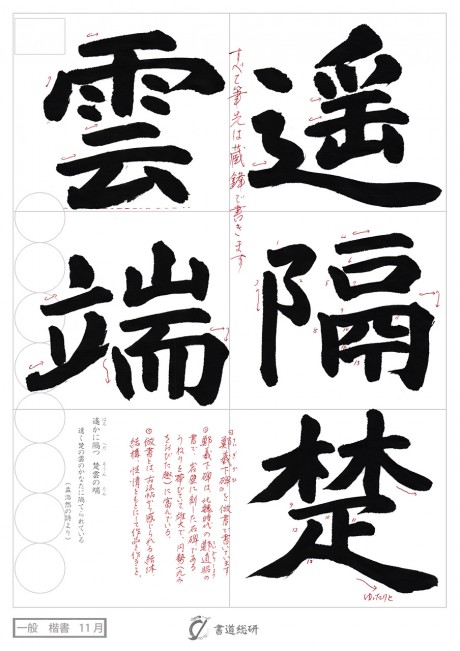 遥隔楚
雲端
すべて筆先は蔵鋒で書きます
ゆったりと
鄭羲下碑を倣書で書いています
鄭羲下碑は、北魏時代の鄭道昭の
書で、岩壁に刻した石碑である
うねりを帯びて雄大で、円勢
に富んでいる。
倣書とは、古法帖から感じられる結体
結構、性情をもとにして作品を作ること
遙かに隔つ 楚雲の端
はる
へだ
そうん
たん
遠く楚の雲のかなたに隔てられている
(孟浩然の詩より)
一般 楷書 11月
書道総研